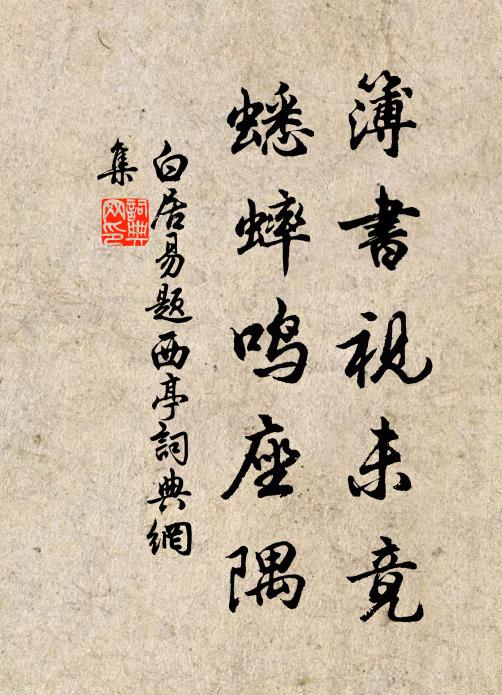 簿書視未竟
蟋蟀鳴座隅
白居易題西亭詞典網
集
詞典
网印